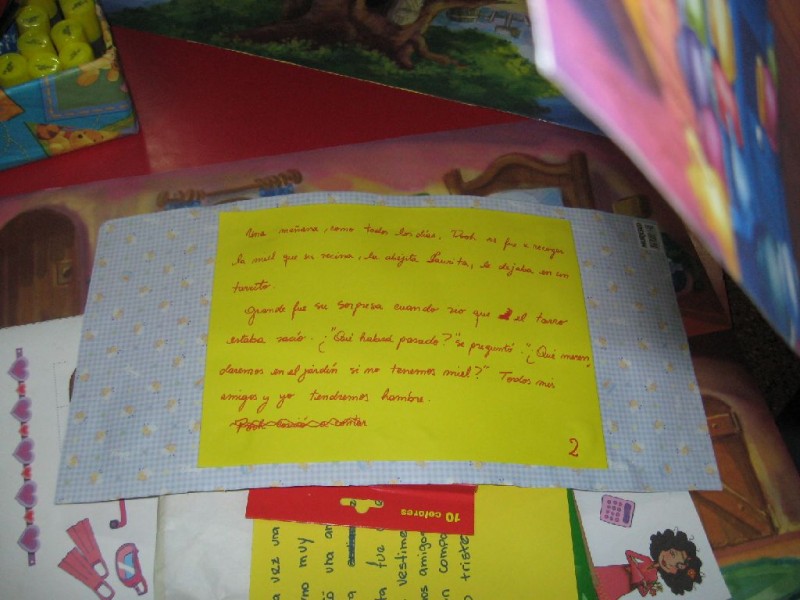 Una mañana, como todos los días, Pooh se fue a recoger
la miel que su vecina, la abejita Laurita, le dejaba en un
tarrito
Grande fue su sorpresa cuando vio que el tarro
estaba vacío. ¿"Qué habrá pasado?" se preguntó. "¿Qué meren,
daremos en el jardín si no tenemos miel?" Todos mis
amigos y yo tendremos hambre.
2
10 colores
a vez una
no muy
ó una am
ta fue
vestime
os amigo
n compa
o triste